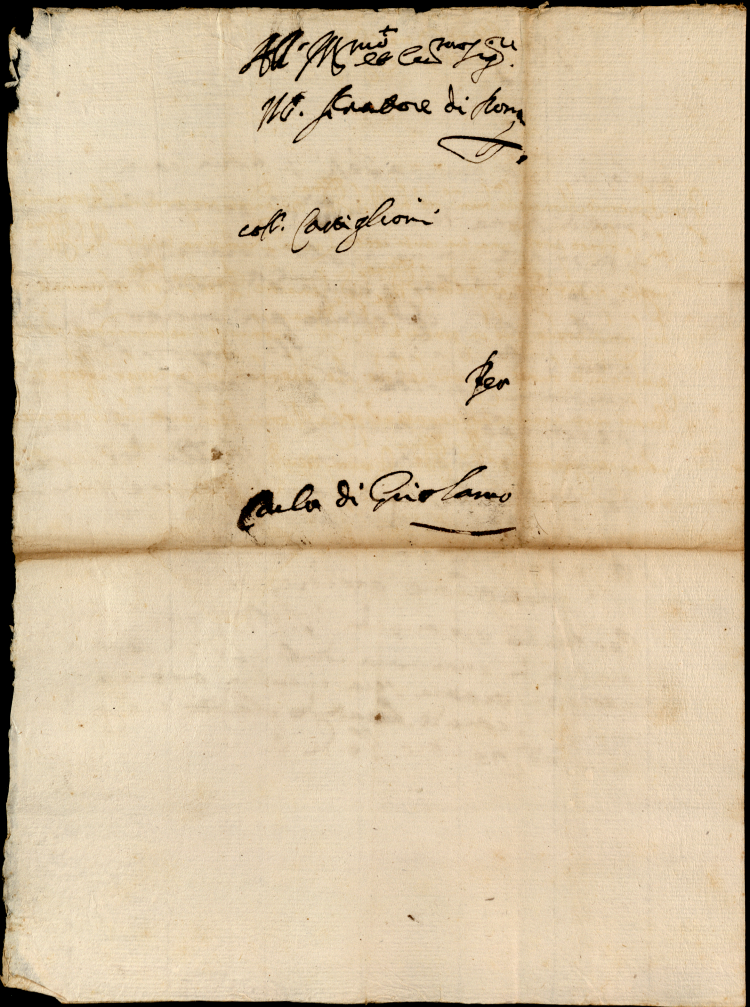 All' Ill.mo et Ecc.mo Sig.re
Il Senatore di Roma
Coll. Castiglioni
Per
Carlo di Girolamo